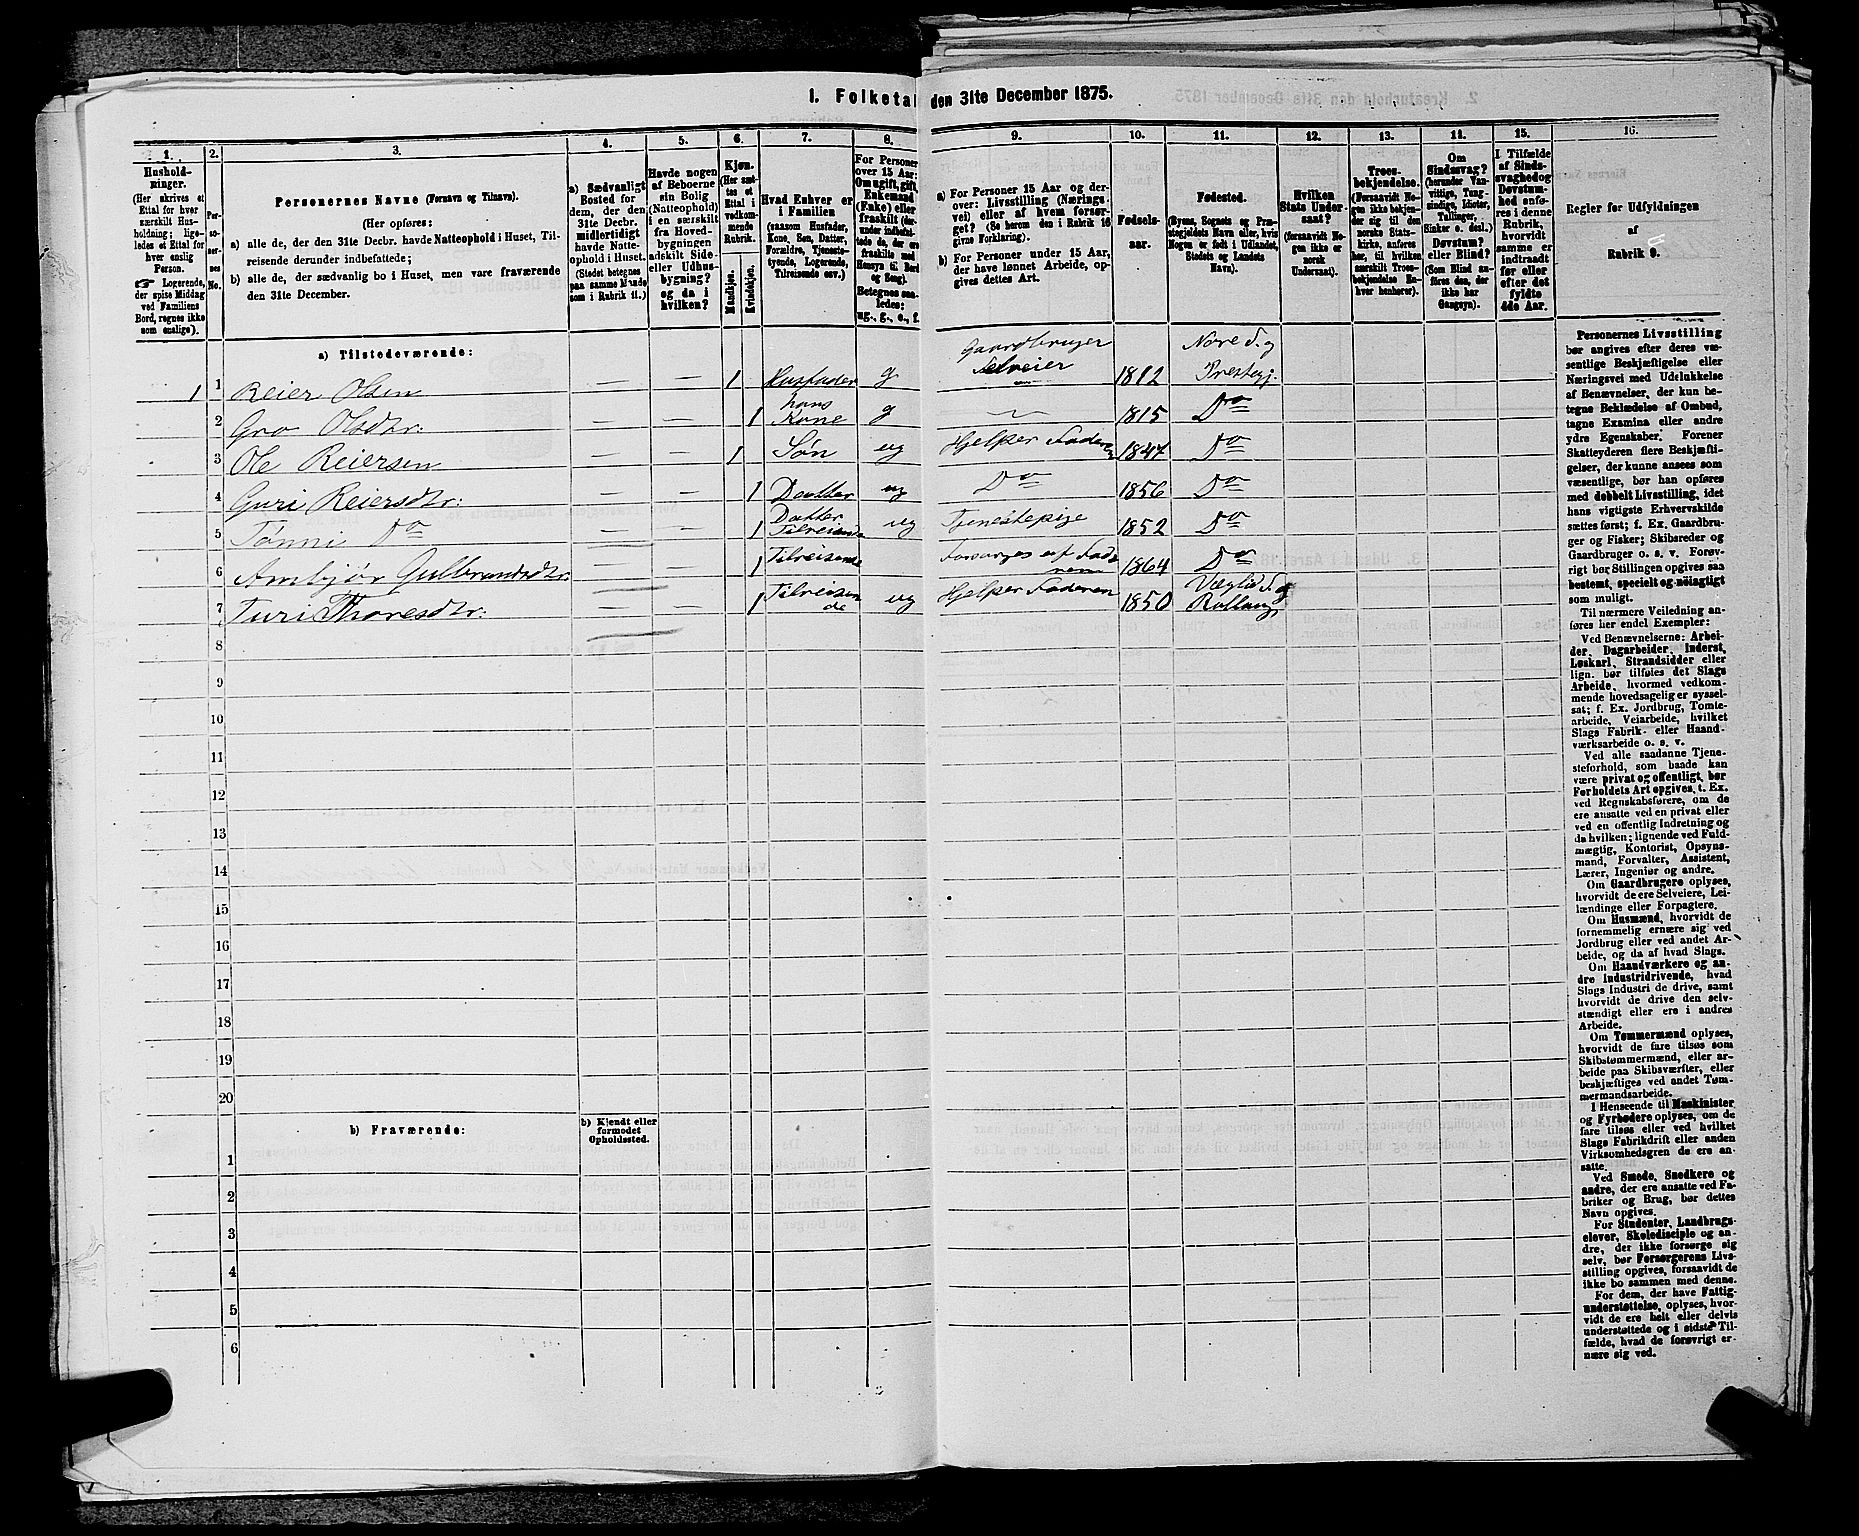 1. Folketal den 31te December 1875.
1.
2.
3.
4.
5.
6.
7.
8.
9.
10.
11.
12.
13.
14.
15.
16.
Hushold-
ninger.
(Her skrives et
Ettal for hver
særskilt Hus-
holdning; lige-
ledes et Ettal for
hver enslig
Person.
☞ Logerende,
der spise Middag
ved Familiens
Bord, regnes ikke
som enslige).
Per-
so-
ner-
nes
No.
Personernes Navne (Fornavn og Tilnavn).
(Her opføres:
a) alle de, der den 31te Decbr. havde Natteophold i Huset, Til-
reisende derunder indbefattede;
b) alle de, der sædvanlig bo i Huset, men vare fraværende
den 31te December.
a) Sædvanligt
Bosted for
dem, der den
31te Decbr.
midlertidigt
havde Natte-
ophold i Huset.
(Stedet betegnes
paa samme Maade
som i Rubrik 11.)
Havde nogen
af Beboerne
sin Bolig
(Natteophold)
i en særskilt
fra Hoved-
bygningen
adskilt Side-
eller Udhus-
bygning?
og da i
hvilken?
Kjøn.
(Her sæt-
tes et
Ettal i
vedkom-
mende
Rubrik.
Mandkjøn.
Kvindekjøn.
Hvad Enhver er
i Familien
(saasom Husfader,
Kone, Søn, Datter,
Forældre, Tjeneste-
tyende, Logerende,
Tilreisende osv.)
For Personer
over 15 Aar:
Om ugift, gift,
Enkemand
(Enke) eller
fraskilt
Betegnes saa-
ledes:
ug., g., e., f.
a) For Personer 15 Aar og der-
over: Livsstilling (Nærings-
vei) eller af hvem forsør-
get? (Se herom den i Rubrik 16
givne Forklaring).
b) For Personer under 15 Aar,
der have lønnet Arbeide, op-
gives dettes Art.
Fødsels-
aar.
Fødested.
(Byens, Sognets og Præ-
stegjeldets Navn eller, hvis
Nogen er født i Udlandet,
Stedets og Landets
Navn).
Hvilken
Stats Under-
saat?
(forsaavidt No-
gen ikke er
norsk
Undersaat).
Troes-
bekjendelse.
(Forsaavidt No-
gen ikke bekjen-
der sig til den
norske Stats-
kirke, anføres
her, til hvilken
særskilt Troes-
bekjendelse En-
hver henhører).
Om
Sindssvag?
(herunder Van-
vittige, Tung-
sindige, Idioter,
Tullinger,
Sinker o. desl.)
Døvstum?
eller Blind?
(Som Blind an-
føres den, der
ikke har
Gangsyn).
I Tilfælde
af Sinds-
svaghed og
Døvstum-
hed anfø-
res i denne
Rubrik,
hvorvidt
samme er
indtraadt
før eller
efter det
fyldte
4de Aar.
Regler for Udfyldningen
af
Rubrik 9.
a) Tilstedeværende:
1 1 Reier Olsen — — 1 Husfader g Gaardbruger Selveier 1812 Nore S. og Prestegj.
2 Gro Olsdtr: — — 1 hans Kone g — 1815 Do
3 Ole Reiersen — — 1 Søn ug Hjelper Faderen 1847 Do
4 Guri Reiersdtr: — — 1 Datter ug Do 1856 Do
5 Tønni Do — 1 Datter Tilreisende ug Tjenestepige 1852 Do
6 Ambjør Gulbrandsdtr. — 1 Tilreisende Forsørges af Faderen 1864 Do
7 Turi Thoresdtr: — 1 Tilreisende ug Hjelper Faderen 1850 Væglid S. og Rollaug
8
9
10
11
12
13
14
15
16
17
18
19
20
b) Fraværende:
b) Kjendt eller
formodet
Opholdssted.
1
2
3
4
5
6
Personernes Livsstilling
bør angives efter deres væ-
sentlige Beskjæftigelse eller
Næringsvei med Udelukkelse
af Benævnelser, der kun be-
tegne Beklædelse af Ombud,
tagne Examina eller andre
ydre Egenskaber. Forener
Skatteyderen flere Beskjæfti-
gelser, der kunne ansees som
væsentlige, bør han opføres
med dobbelt Livsstilling, idet
hans vigtigste Erhvervskilde
sættes først; f. Ex. Gaardbru-
ger og Fisker; Skibsreder og
Gaardbruger o. s. v. Forøv-
rigt bør Stillingen opgives saa
bestemt, specielt og nøiagtigt
som muligt.
Til nærmere Veiledning an-
føres her endel Exempler:
Ved Benævnelserne: Arbei-
der, Dagarbeider, Inderst,
Løskarl, Strandsidder eller
lign. bør tilføies det Slags
Arbeide, hvormed vedkom-
mende hovedsagelig er syssel-
sat; f. Ex. Jordbrug, Tomte-
arbeide, Veiarbeide, hvilket
Slags Fabrik- eller Haand-
værksarbeide o. s. v.
Ved alle saadanne Tjene-
steforhold, som baade kan
være privat og offentligt, bør
Forholdets Art opgives, t. Ex.
ved Regnskabsførere, om de
ere ansatte ved en privat eller
ved en offentlig Indretning og
da hvilken; lignende ved Fuld-
mægtig, Kontorist, Opsyns-
mand, Forvalter, Assistent,
Lærer, Ingeniør og andre.
Om Gaardbrugere oplyses,
hvorvidt de ere Selveiere, Lei-
lændinge eller Forpagtere.
Om Husmænd, hvorvidt de
fornemmelig ernære sig ved
Jordbrug eller ved andet Ar-
beide, og da af hvad Slags.
Om Haandværkere og an-
dre Industridrivende, hvad
Slags Industri de drive, samt
hvorvidt de drive den selv-
stændigt eller ere i andres
Arbeide.
Om Tømmermænd oplyses,
hvorvidt de fare tilsøs som
Skibstømmermænd, eller ar-
beide paa Skibsværfter, eller
beskjæftiges ved andet Tøm-
mermandsarbeide.
I Henseende til Maskinister
og Fyrbødere oplyses, om de
fare tilsøs eller ved hvilket
Slags Fabrikdrift eller anden
Virksomhedsgren de ere an-
satte.
Ved Smede, Snedkere og
andre, der ere ansatte ved Fa-
briker og Brug, bør dettes
Navn opgives.
For Studenter, Landbrugs-
elever, Skoledisciple og an-
dre, der ikke forsørge sig
selv, bør Forsørgerens Livs-
stilling opgives, forsaavidt de
ikke bo sammen med denne.
For dem, der have Fattig-
understøttelse, oplyses, hvor-
vidt de ere helt eller delvis
understøttede og i sidste Til-
fælde, hvad de forøvrigt er-
nære sig ved.